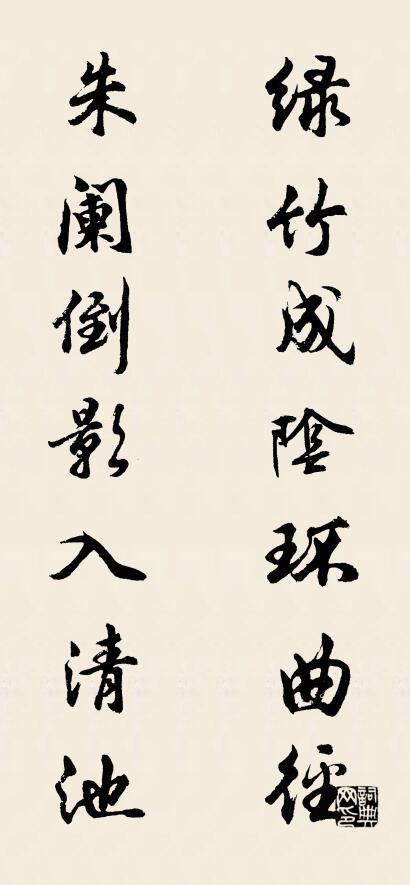 绿竹成陰环曲徑
朱阑倒影入清池
詞典
网印